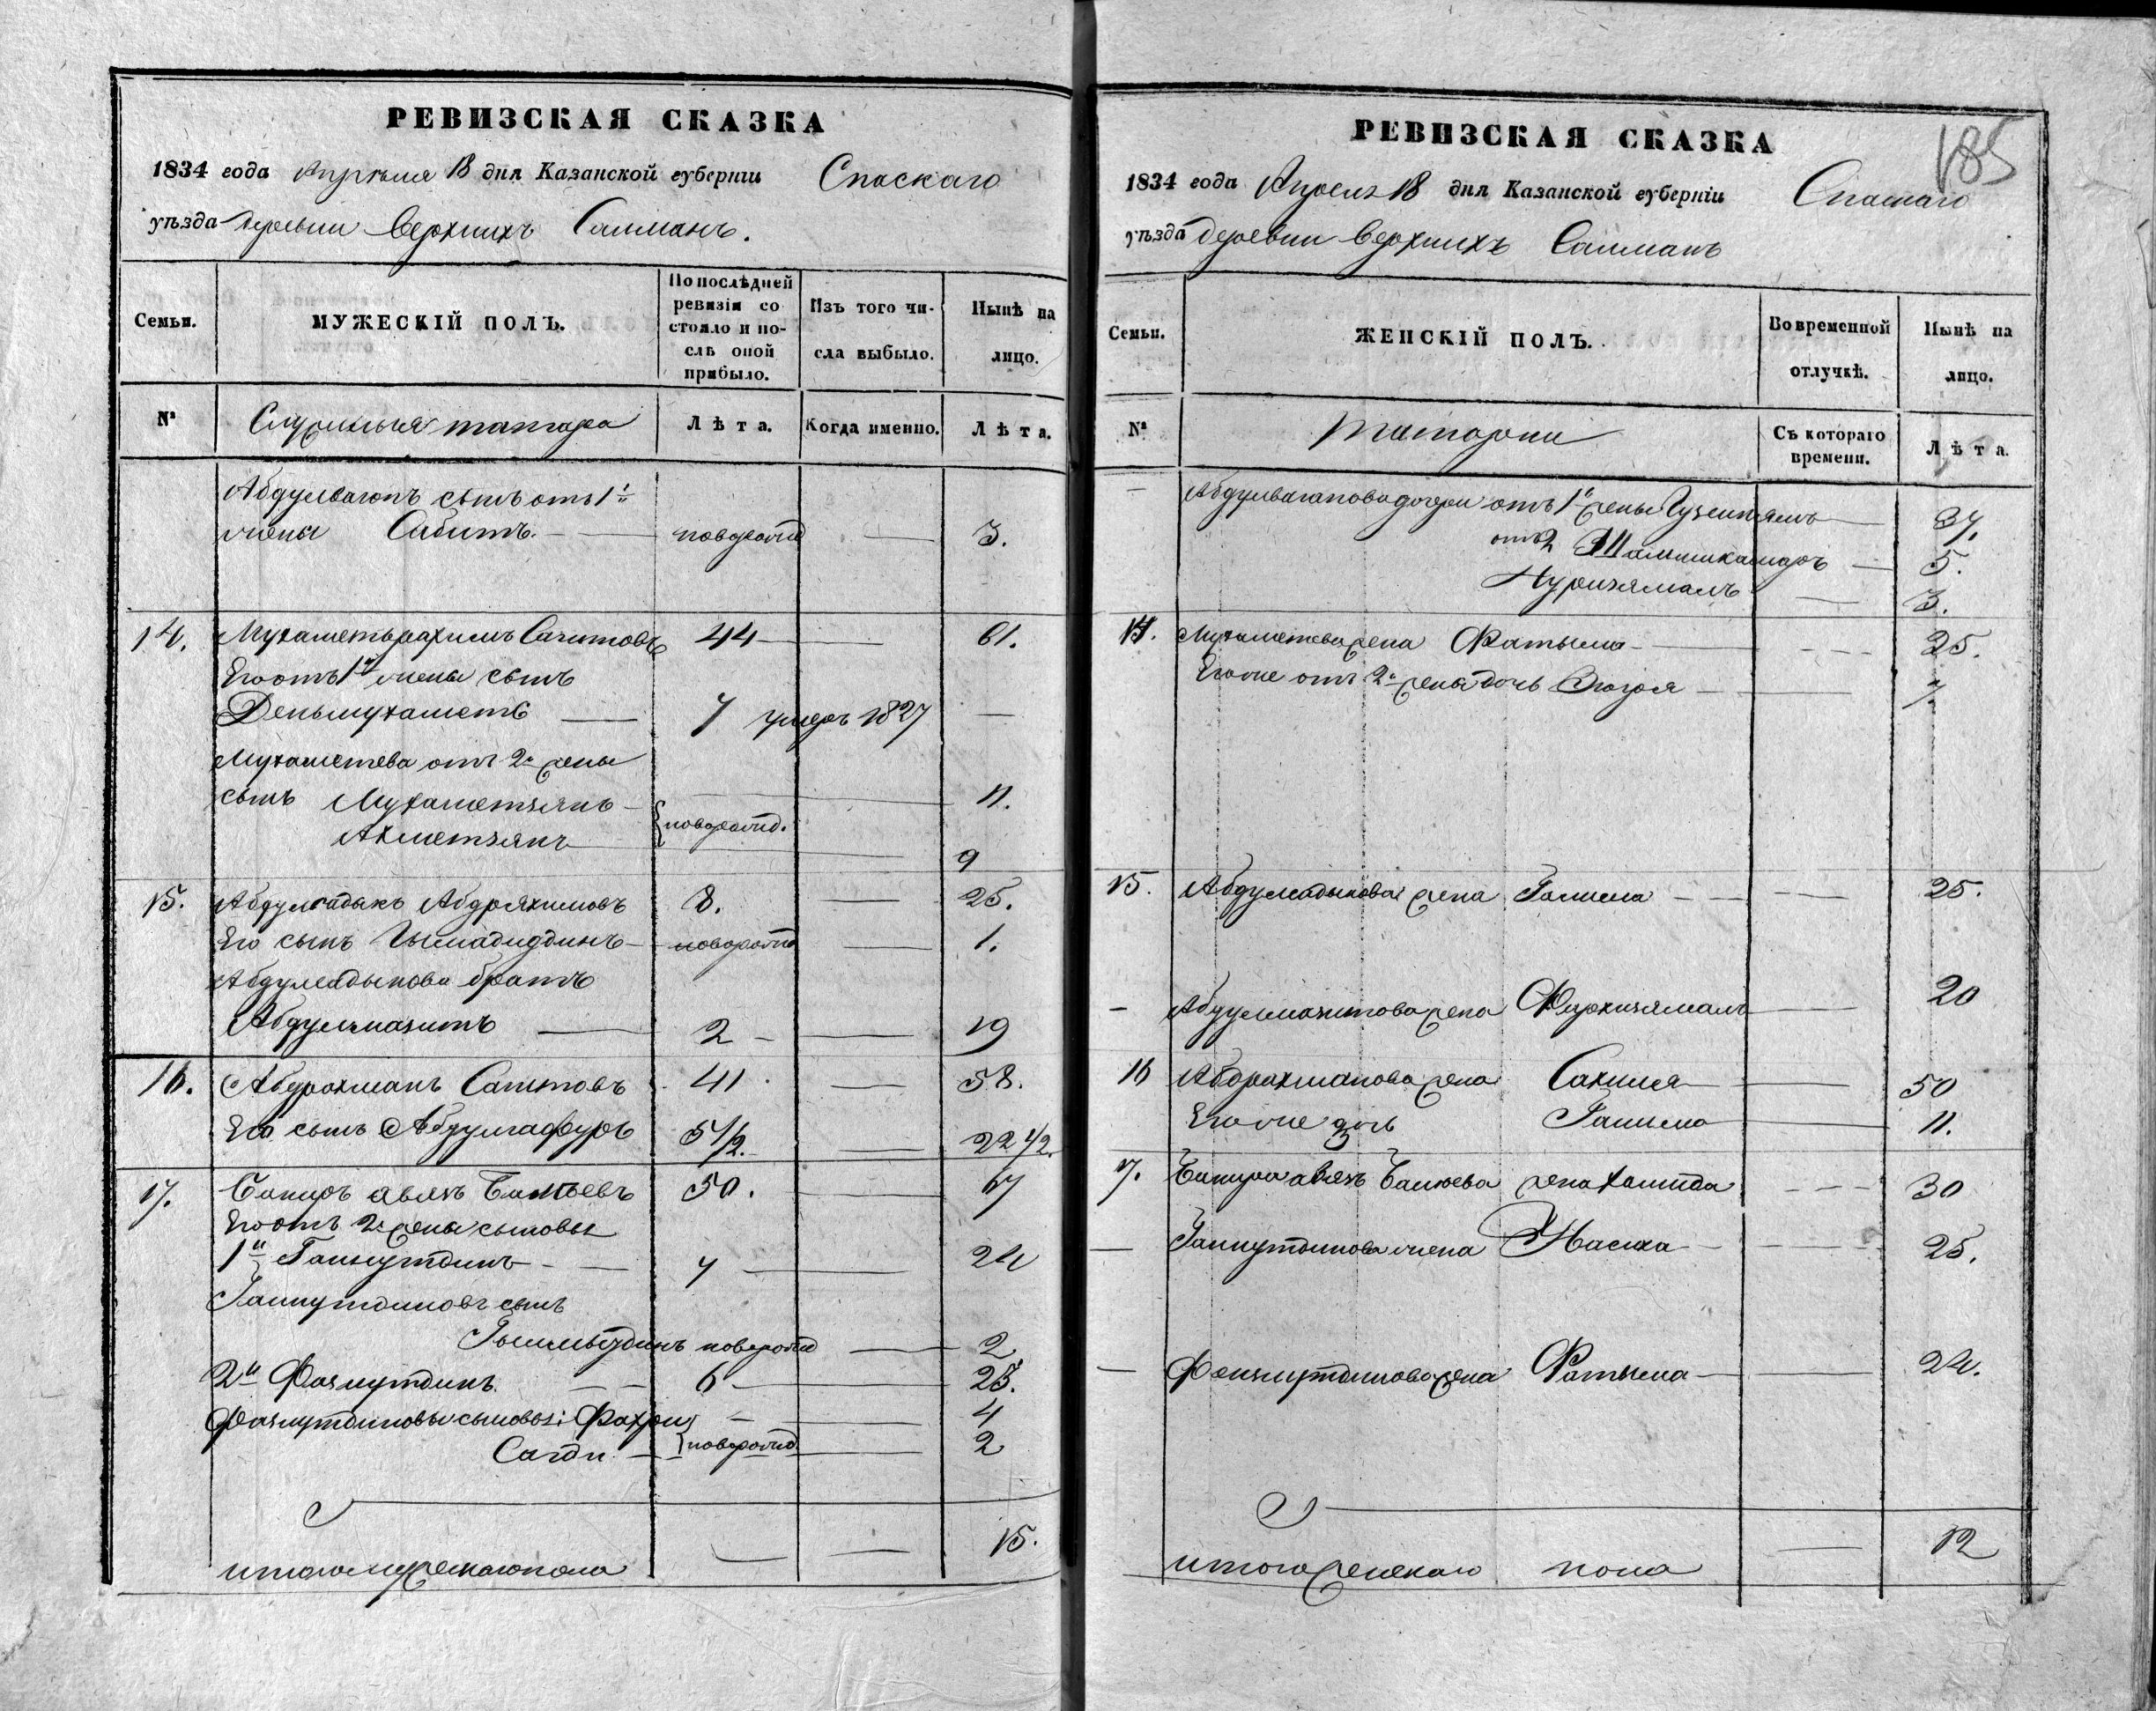 РЕВИЗСКАЯ СКАЗКА
1834 года Апреля 18 дня Казанской губерніи Спаскаго
уѣзда деревни Верхнихъ Салманъ.
Семьи. МУЖЕСКІЙ ПОЛЪ. По послѣдней ревизіи состояло и послѣ оной прибыло. Изъ того числа выбыло. Нынѣ на лицо.
№ Служилыя татара Лѣта. Когда именно. Лѣта.
сынъ отъ 1й
жены Сабитъ. новорожд 3.
14. Мухаметьрахимъ Сагитовъ 44 61.
Его отъ 1й жены сынъ
Деньмухаметь 7 умеръ 1827
Мухаметева отъ 2й жены
сынъ Мухаметзянъ 11.
Ахметзянъ новорожд. 9
15. Абдулгадыкъ Абдряхимовъ 8. 25.
Его сынъ новорожд 1.
братъ
Абдулмазитъ 2 19
16. Абдрохманъ Сагитовъ 41 58.
Его сынъ Абдулгафуръ 5 1/2. 22 1/2.
17. 50. 67
Его отъ 2й жены сыновья
1й Гайнутдинъ 7 24
Гайнутдиновъ сынъ
новорожд 2
2й Фазлутдинъ. 6 23.
Фазлутдиновы сыновья: Фахри 4
Сагди новорожд 2
итого мужескаго пола 15.
РЕВИЗСКАЯ СКАЗКА
185
1834 года Апреля 18 дня Казанской губерніи Спаскаго
уѣзда деревни Верхнихъ Салманъ
Семьи. ЖЕНСКІЙ ПОЛЪ. Во временной отлучкѣ. Нынѣ на лицо.
№ Татарки Съ котораго времени. Лѣта.
дочери отъ 1й жены
отъ 2й 5.
Нуризямалъ 3.
14. Мухаметева жена Фатыма 25.
Его же отъ 2й жены дочь 7.
15. жена Галима 25.
Абдулмазитова жена Фархизямалъ 20
16 Абдрахманова жена Сахипя 50
Его же дочь Галима 11.
17. жена Хамида 30
Гайнутдинова жена 25.
Фазлутдинова жена Фатыма 24.
итого женскаго пола 12